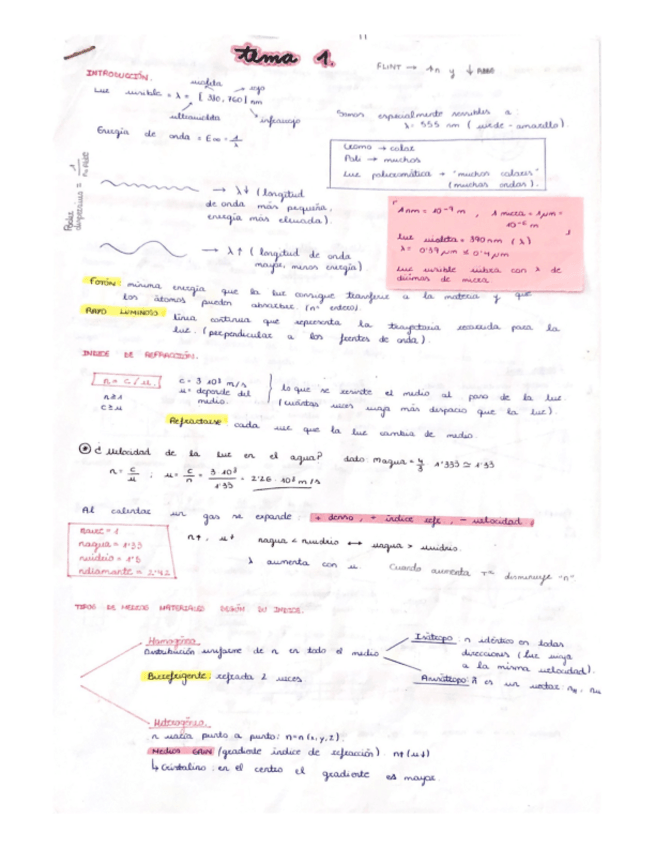 tema 1.
FLINT → ↑n y ↓ ABBE
INTRODUCCIÓN.
violeta
rojo
Luz visible = λ = [380, 760] nm
ultravioleta
infrarrojo
Somos especialmente sensibles a:
λ = 555 nm (verde-amarillo).
Energía de onda = E∞ = 1/λ
Cromo → color
Poli → muchos
Luz policromática → "muchos colores"
(muchas ondas).
→ λ↓ (longitud
de onda más pequeña,
energía más elevada).
1 nm = 10⁻⁹ m , 1 micra = 1 μm =
10⁻⁶ m
luz violeta = 390 nm (λ)
λ = 0'39 μm ≈ 0'4 μm
luz visible vibra con λ de
décimas de micra
→ λ↑ (longitud de onda
mayor, menos energía).
FOTÓN: mínima energía que la luz consigue transferir a la materia y que
los átomos pueden absorber. (nº entero).
RAYO LUMINOSO: línea continua que representa la trayectoria recorrida para la
luz. (perpendicular a los frentes de onda).
ÍNDICE DE REFRACCIÓN.
n = c/u.
n≥1
c≥u
c = 3·10⁸ m/s
u = depende del
medio.
lo que se resiste el medio al paso de la luz.
(cuántas veces viaja más despacio que la luz).
Refractarse cada vez que la luz cambia de medio.
¿velocidad de la luz en el agua? dato: nagua = 4/3 1'333 ≃ 1'33
n = c/u ; u = c/n = 3·10⁸/1'33 = 2'26·10⁸ m/s
Al calentar un gas se expande:
n↑, u↓ nagua < nvidrio ↔ uagua > uvidrio.
naire = 1
nagua = 1'33
nvidrio = 1'5
ndiamante = 2'42
λ aumenta con u. Cuando aumenta Tª disminuye "n".
TIPOS DE MEDIOS MATERIALES SEGÚN SU ÍNDICE.
Homogéneo.
Distribución uniforme de n en todo el medio
Isótropo: n idéntico en todas
direcciones (luz viaja
a la misma velocidad).
Birrefrigente: refracta 2 veces.
Anisótropo: n es un vector:
Heterogéneo.
n varía punto a punto: n=n(x,y,z).
MEDIOS GRIN (gradiente índice de refracción). n↑(u↓)
↳ Cristalino: en el centro el gradiente es mayor.